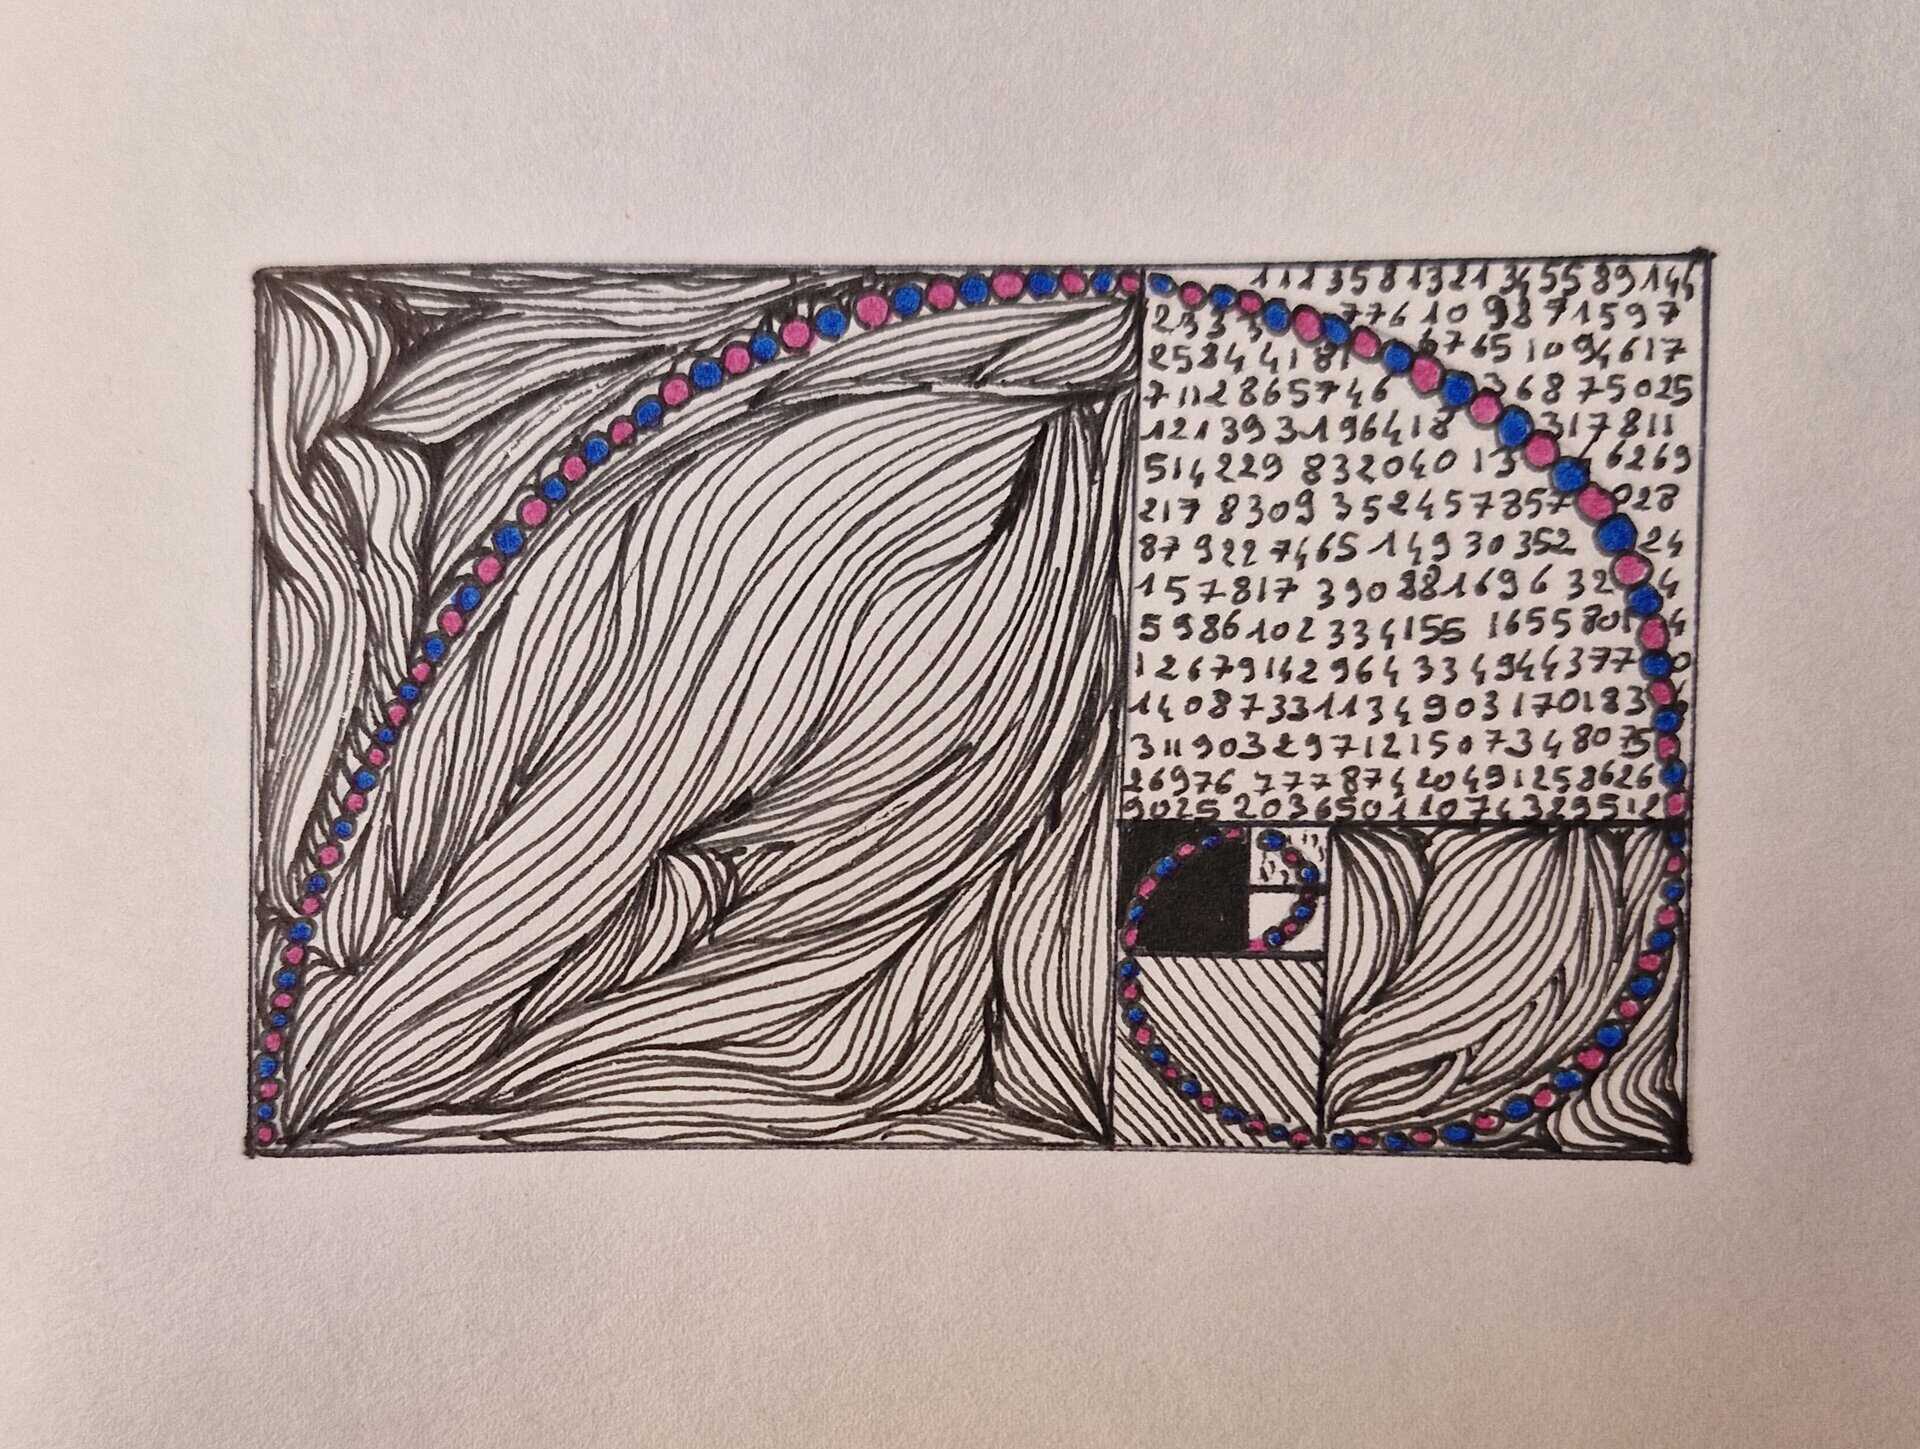 1 1 2 3 5 8 13 21 34 55 89 144
233 3 77 610 987 1597
2584 4181 6765 10946 17
711 28657 46 368 75025
121393 196418 317811
514229 832040 13 6269
217 8309 3524578 57 028
87 9227465 14930352 24
157817 39088169 632 4
5986 102334155 1655801 4
1267914296 433494437 7 0
1408733 1134903170 183
311903 2971215073 48075
26976 7778742049 1258626
9025 20365011074 329512